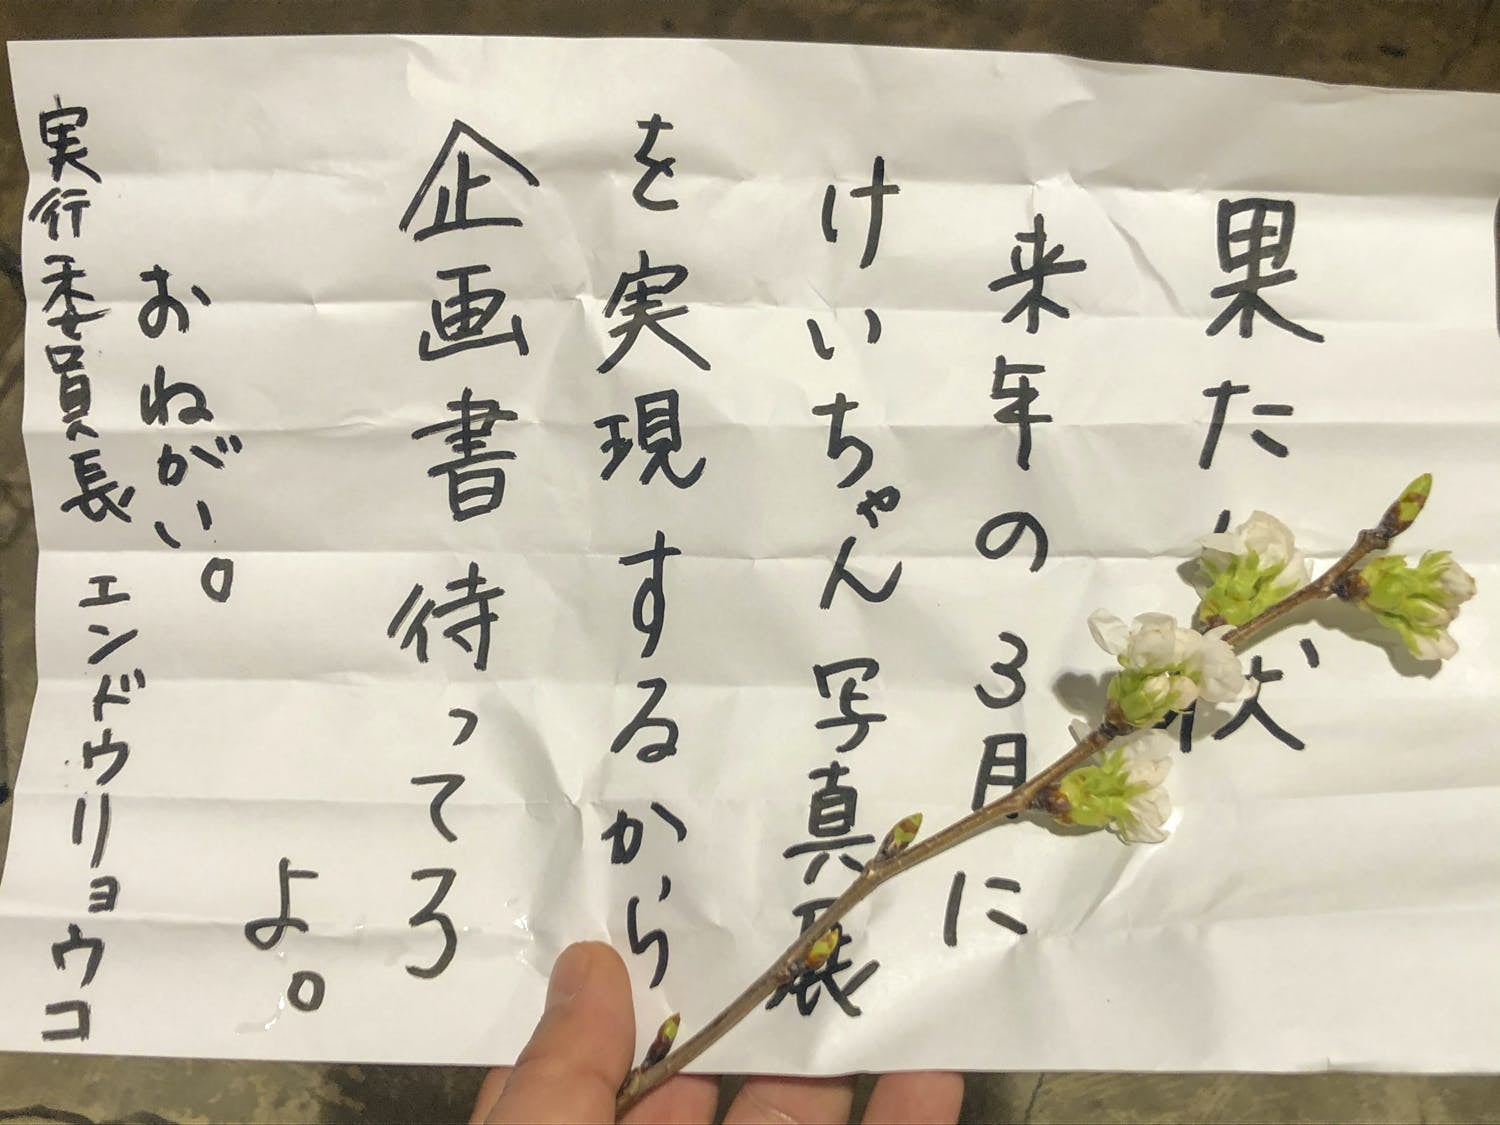 果た 状
来年の3月に
けいちゃん写真展
を実現するから
企画書待ってろ
よ。
おねがい。
実行委員長 エンドウリョウコ